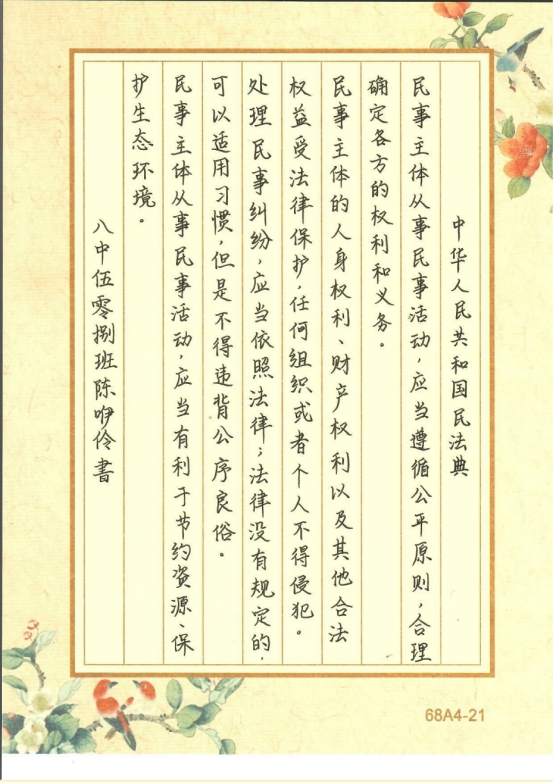 中华人民共和国民法典
民事主体从事民事活动，应当遵循公平原则，合理
确定各方的权利和义务。
民事主体的人身权利、财产权利以及其他合法
权益受法律保护，任何组织或者个人不得侵犯。
处理民事纠纷，应当依照法律；法律没有规定的，
可以适用习惯，但是不得违背公序良俗。
民事主体从事民事活动，应当有利于节约资源、保
护生态环境。
八中伍零捌班陈咿伶書
68A4-21